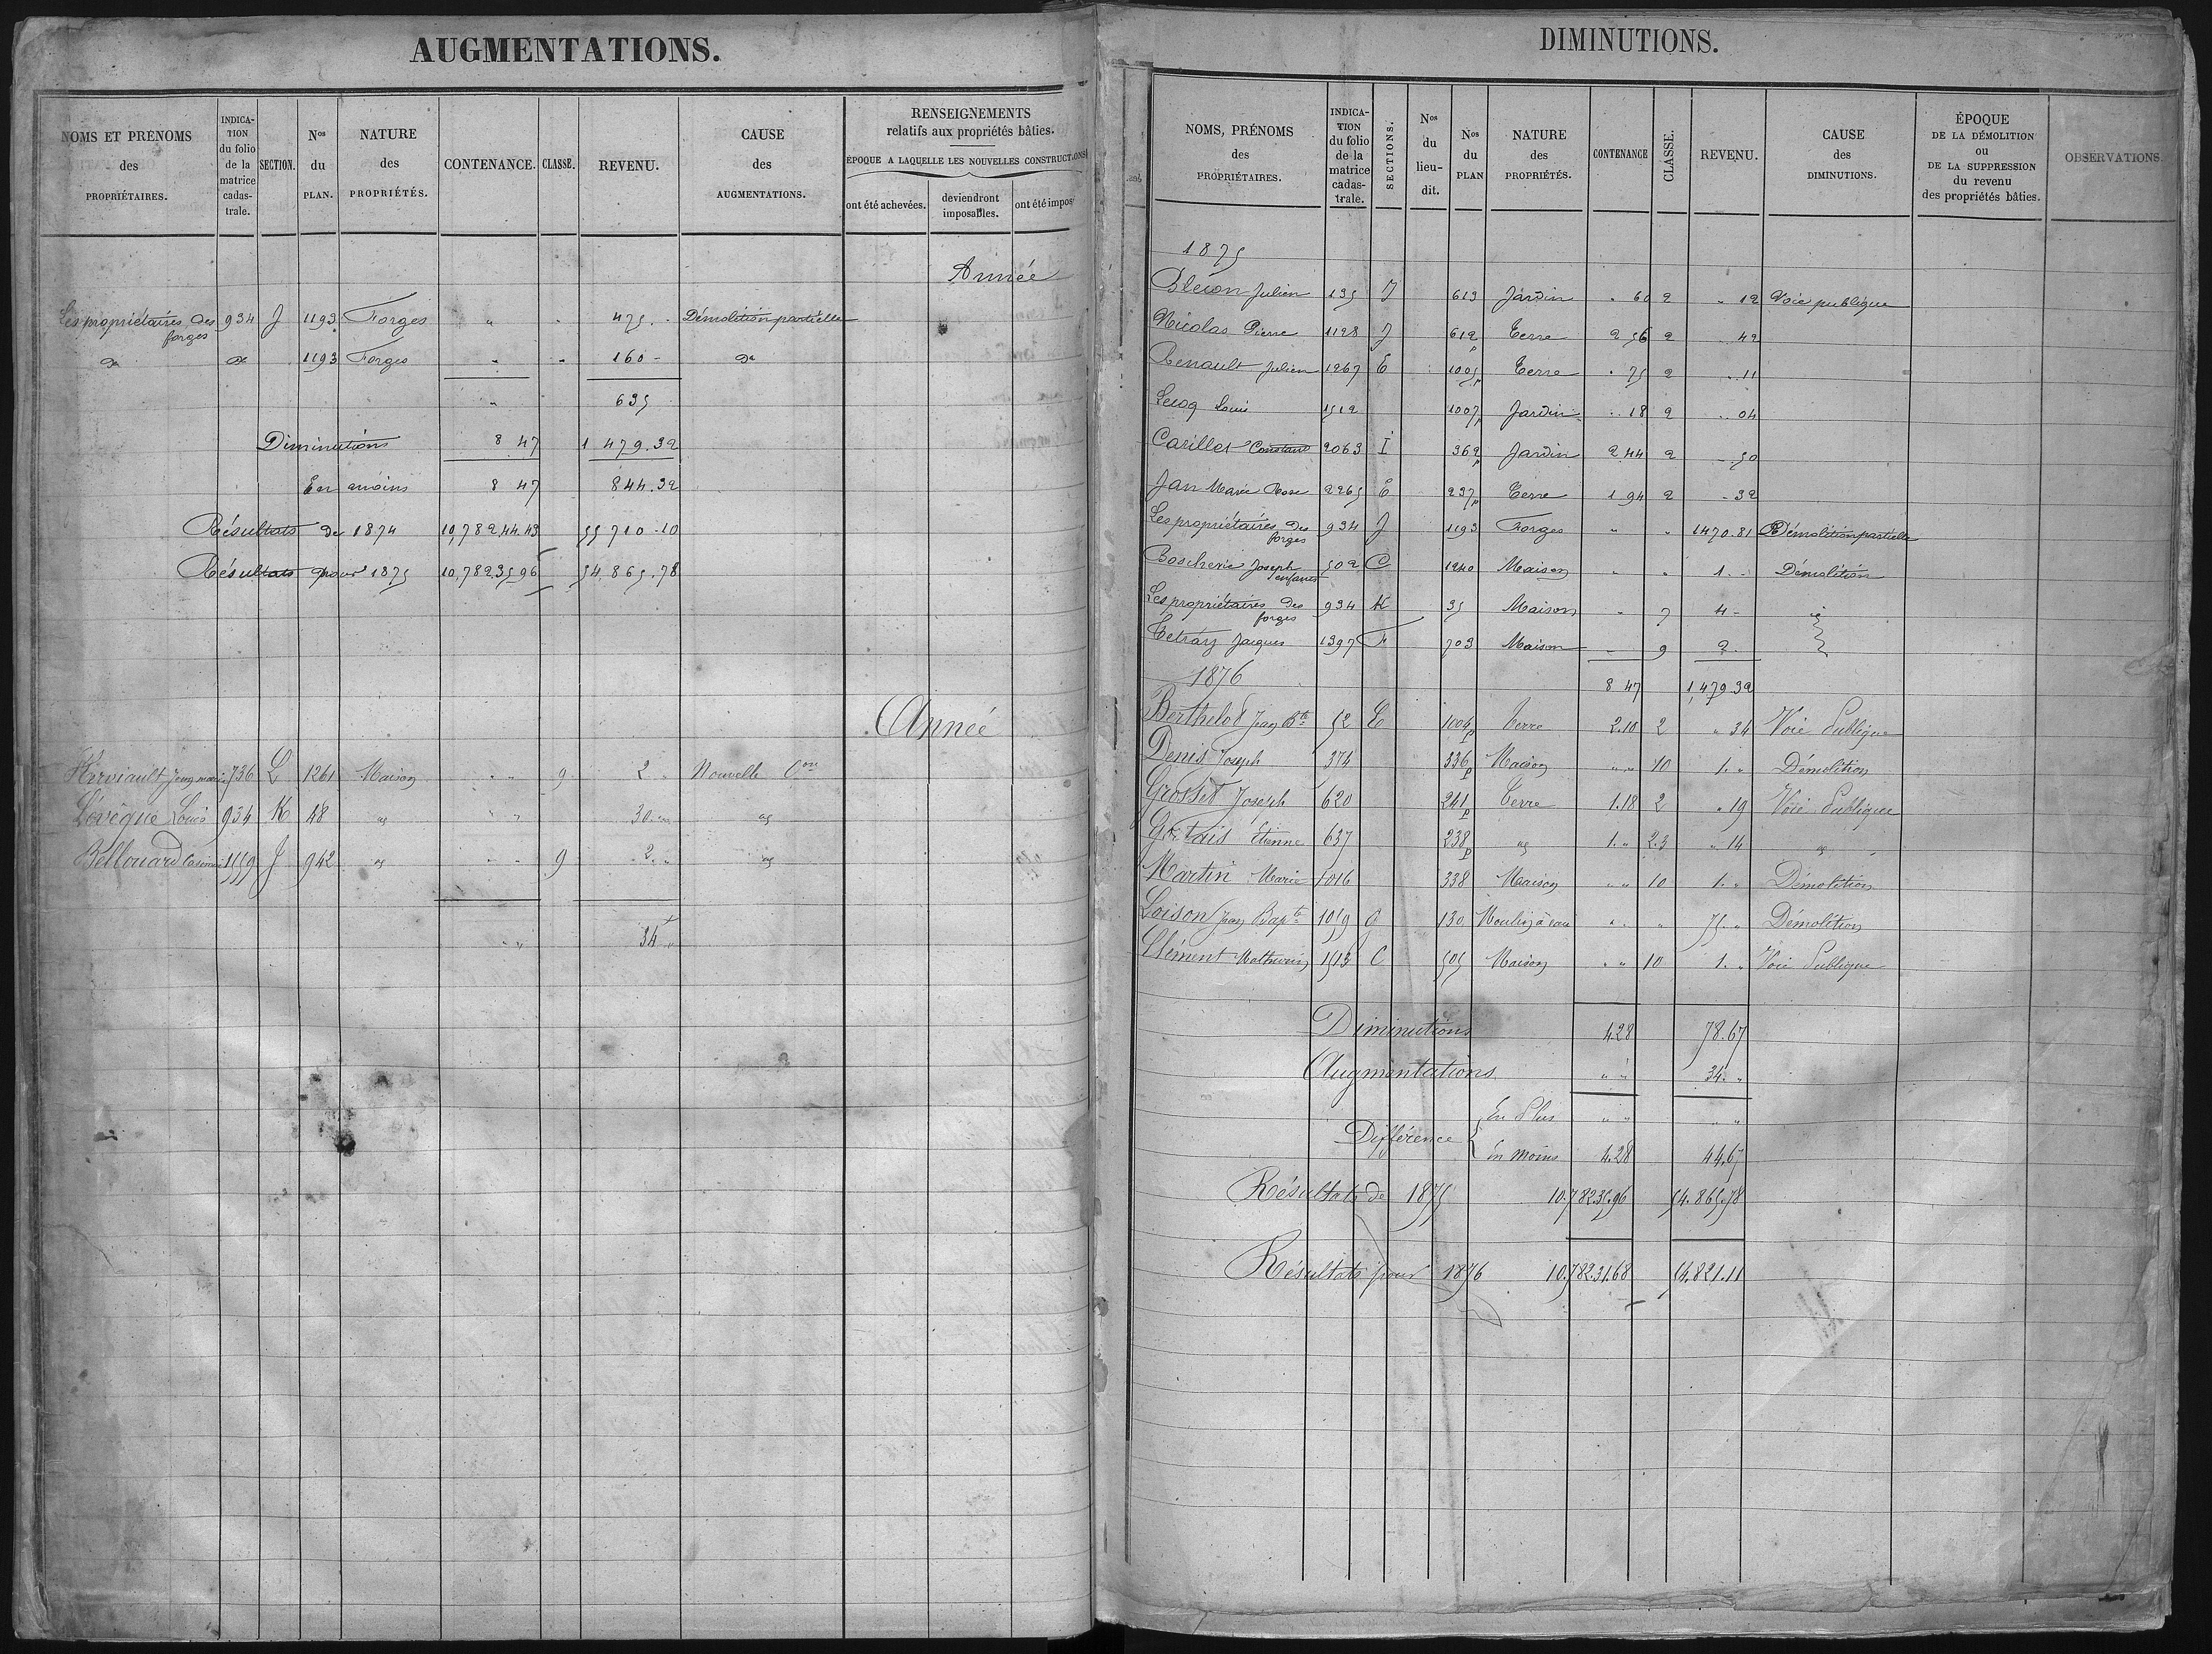 AUGMENTATIONS.
NOMS ET PRÉNOMS des PROPRIÉTAIRES. | INDICATION du folio de la matrice cadastrale. | SECTION. | Nos du PLAN. | NATURE des PROPRIÉTÉS. | CONTENANCE. | CLASSE. | REVENU. | CAUSE des AUGMENTATIONS. | RENSEIGNEMENTS relatifs aux propriétés bâties.
ÉPOQUE A LAQUELLE LES NOUVELLES CONSTRUCTIONS
ont été achevées. | deviendront imposables. | ont été impos
Année
Les propriétaires des forges 934 J 1193 Forges " " 475 - Démolition partielle
do do 1193 Forges " " 160 - do
" 635
Diminutions 8 47 1 479.32
En moins 8 47 844.32
Résultats de 1874 10,782,44.43 55 710-10
Résultats pour 1875 10,782,35 96 54,865.78
Année
Herviault Jean marie 736 L 1261 Maison " " 9 2 " Nouvelle Con
Lévêque Louis 934 K 48 " " " 30 "
Bellouard Casimir 1559 J 942 " " " 9 2 "
" " 34 "
DIMINUTIONS.
NOMS, PRÉNOMS des PROPRIÉTAIRES. | INDICATION du folio de la matrice cadastrale. | SECTIONS. | Nos du lieu-dit. | Nos du PLAN | NATURE des PROPRIÉTÉS. | CONTENANCE | CLASSE. | REVENU. | CAUSE des DIMINUTIONS. | ÉPOQUE DE LA DÉMOLITION ou DE LA SUPPRESSION du revenu des propriétés bâties. | OBSERVATIONS.
1875
Bléion Julien 135 J 613 Jardin " 60 2 " 12 Voie publique
Nicolas Pierre 1128 J 612 p Terre 2 56 2 " 42
Renault Julien 1267 E 1005 p Terre " 75 2 " 11
Lecoq Louis 1512 1007 p Jardin " 18 2 " 04
Carillet Constant 2063 I 362 p Jardin 2 44 2 " 50
Jan Marie Rose 2265 E 237 p Terre 1 94 2 " 32
Les propriétaires des forges 934 J 1193 Forges " " 1470.81 Démolition partielle
Boscherie Joseph enfants 502 C 1240 Maison " " 1. - Démolition
Les propriétaires des forges 934 K 35 Maison " 7 4 -
Tetray Jacques 1397 F 703 Maison " 9 2 -
8 47 1,479 32
1876
Berthelot Jean Bte 52 E 1004 p Terre 2.10 2 " 34 Voie Publique
Denis Joseph 374 336 p Maison " " 10 1. " Démolition
Grosset Joseph 620 241 p Terre 1.18 2 " 19 Voie Publique
Gortais Etienne 637 238 p " 1. " 2.3 " 14 "
Martin Marie 1016 338 Maison " " 10 1. " Démolition
Loison Jean Bapte 1059 G 130 Moulin à eau " " " 75. " Démolition
Clément Mathurin 1513 C 505 Maison " " 10 1. " Voie Publique
Diminutions 4.28 78.67
Augmentations " " 34. "
Différence { En Plus " " " "
En moins 4.28 44.67
Résultats de 1875 10.782.35.96 54.865.78
Résultats pour 1876 10.782.31.68 54.821.11